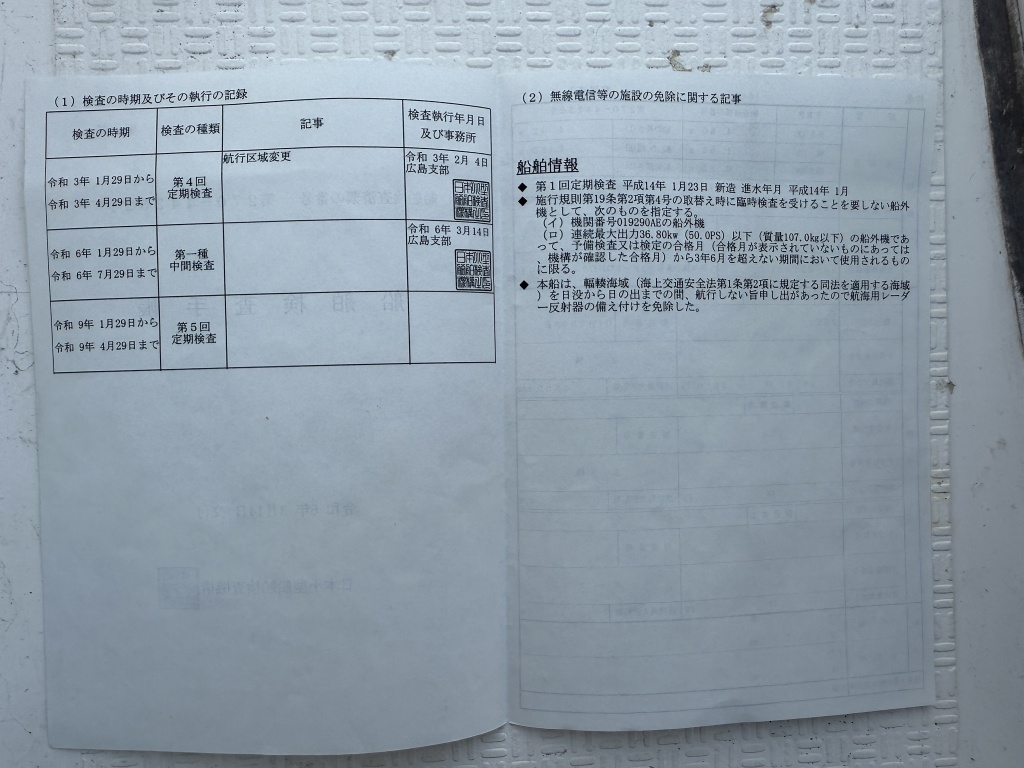 (1) 検査の時期及びその執行の記録
検査の時期
検査の種類
記事
検査執行年月日
及び事務所
令和 3年 1月29日から
令和 3年 4月29日まで
第4回
定期検査
航行区域変更
令和 3年 2月 4日
広島支部
令和 6年 1月29日から
令和 6年 7月29日まで
第一種
中間検査
令和 6年 3月14日
広島支部
令和 9年 1月29日から
令和 9年 4月29日まで
第5回
定期検査
(2) 無線電信等の施設の免除に関する記事
船舶情報
◆ 第1回定期検査 平成14年 1月23日 新造 進水年月 平成14年 1月
◆ 施行規則第19条第2項第4号の取替え時に臨時検査を受けることを要しない船外
機として、次のものを指定する。
(イ) 機関番号019290AEの船外機
(ロ) 連続最大出力36.80kw (50.0PS) 以下 (質量107.0kg以下) の船外機であ
って、予備検査又は検定の合格月 (合格月が表示されていないものにあっては
、機構が確認した合格月) から3年6月を超えない期間において使用されるもの
に限る。
◆ 本船は、輻輳海域 (海上交通安全法第1条第2項に規定する同法を適用する海域
) を日没から日の出までの間、航行しない旨申し出があったので航海用レーダ
ー反射器の備え付けを免除した。